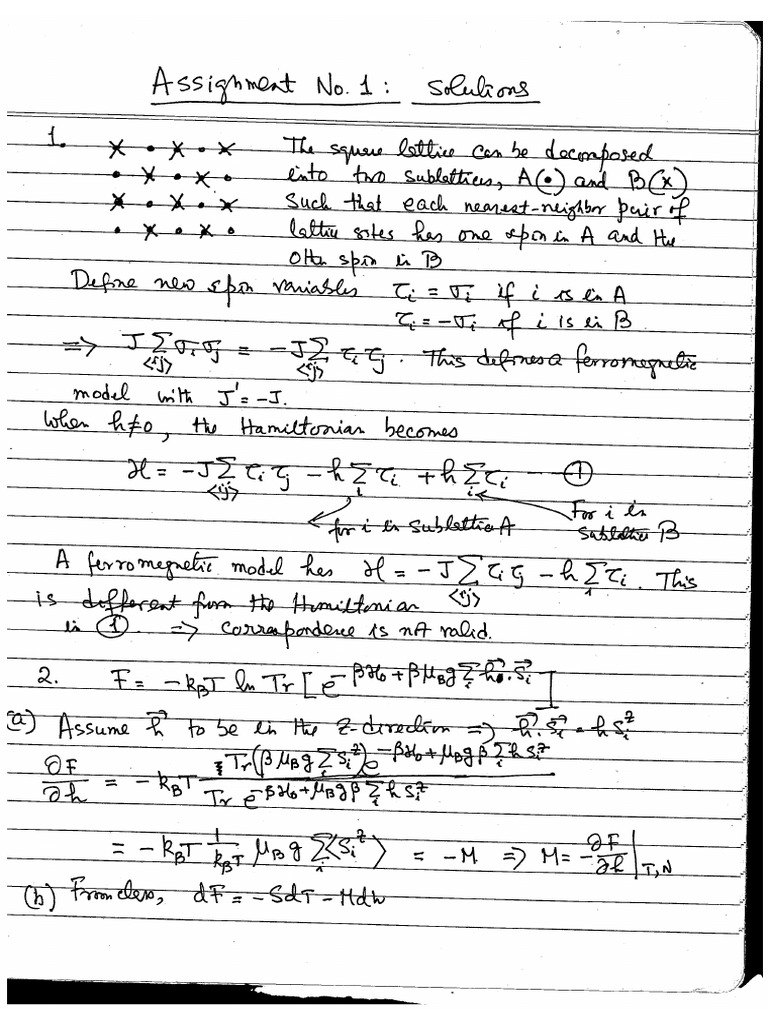 Assignment No. 1 : Solutions
1. The square lattice can be decomposed
into two sublattices, A(•) and B(x)
such that each nearest-neighbor pair of
lattice sites has one spin in A and the
other spin in B
Define new spin variables τ_i = σ_i if i is in A
τ_i = -σ_i if i is in B
⇒ J Σ_<ij> σ_i σ_j = -J Σ_<ij> τ_i τ_j. This defines a ferromagnetic
model with J' = -J.
When h≠0, the Hamiltonian becomes
ℋ = -J Σ_<ij> τ_i τ_j - h Σ_i τ_i + h Σ_i τ_i --- ①
for i in sublattice A
For i in
sublattice B
A ferromagnetic model has ℋ = -J Σ_<ij> τ_i τ_j - h Σ_i τ_i. This
is different from the Hamiltonian
in ①. ⇒ correspondence is not valid.
2. F = -k_B T ln Tr [ e^{-βℋ_0 + β μ_B g Σ_i h⃗·S⃗_i} ]
(a) Assume h⃗ to be in the z-direction ⇒ h⃗·S⃗_i = h S_i^z
∂F/∂h = -k_B T Tr(β μ_B g Σ_i S_i^z) e^{-βℋ_0 + μ_B g β Σ_i h S_i^z} / Tr e^{-βℋ_0 + μ_B g β Σ_i h S_i^z}
= -k_B T 1/(k_B T) μ_B g Σ_i <S_i^z> = -M ⇒ M = -∂F/∂h |_{T,N}
(b) From class, dF = -SdT - Mdh